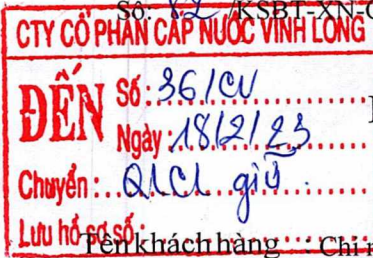 Số: 82 /KSBT-XN-
CTY CỔ PHẦN CẤP NƯỚC VĨNH LONG
ĐẾN
Số: 36/CV
Ngày 18/2/23
Chuyển: QLCL giữ.
Lưu hồ sơ số:
Tên khách hàng : Chi